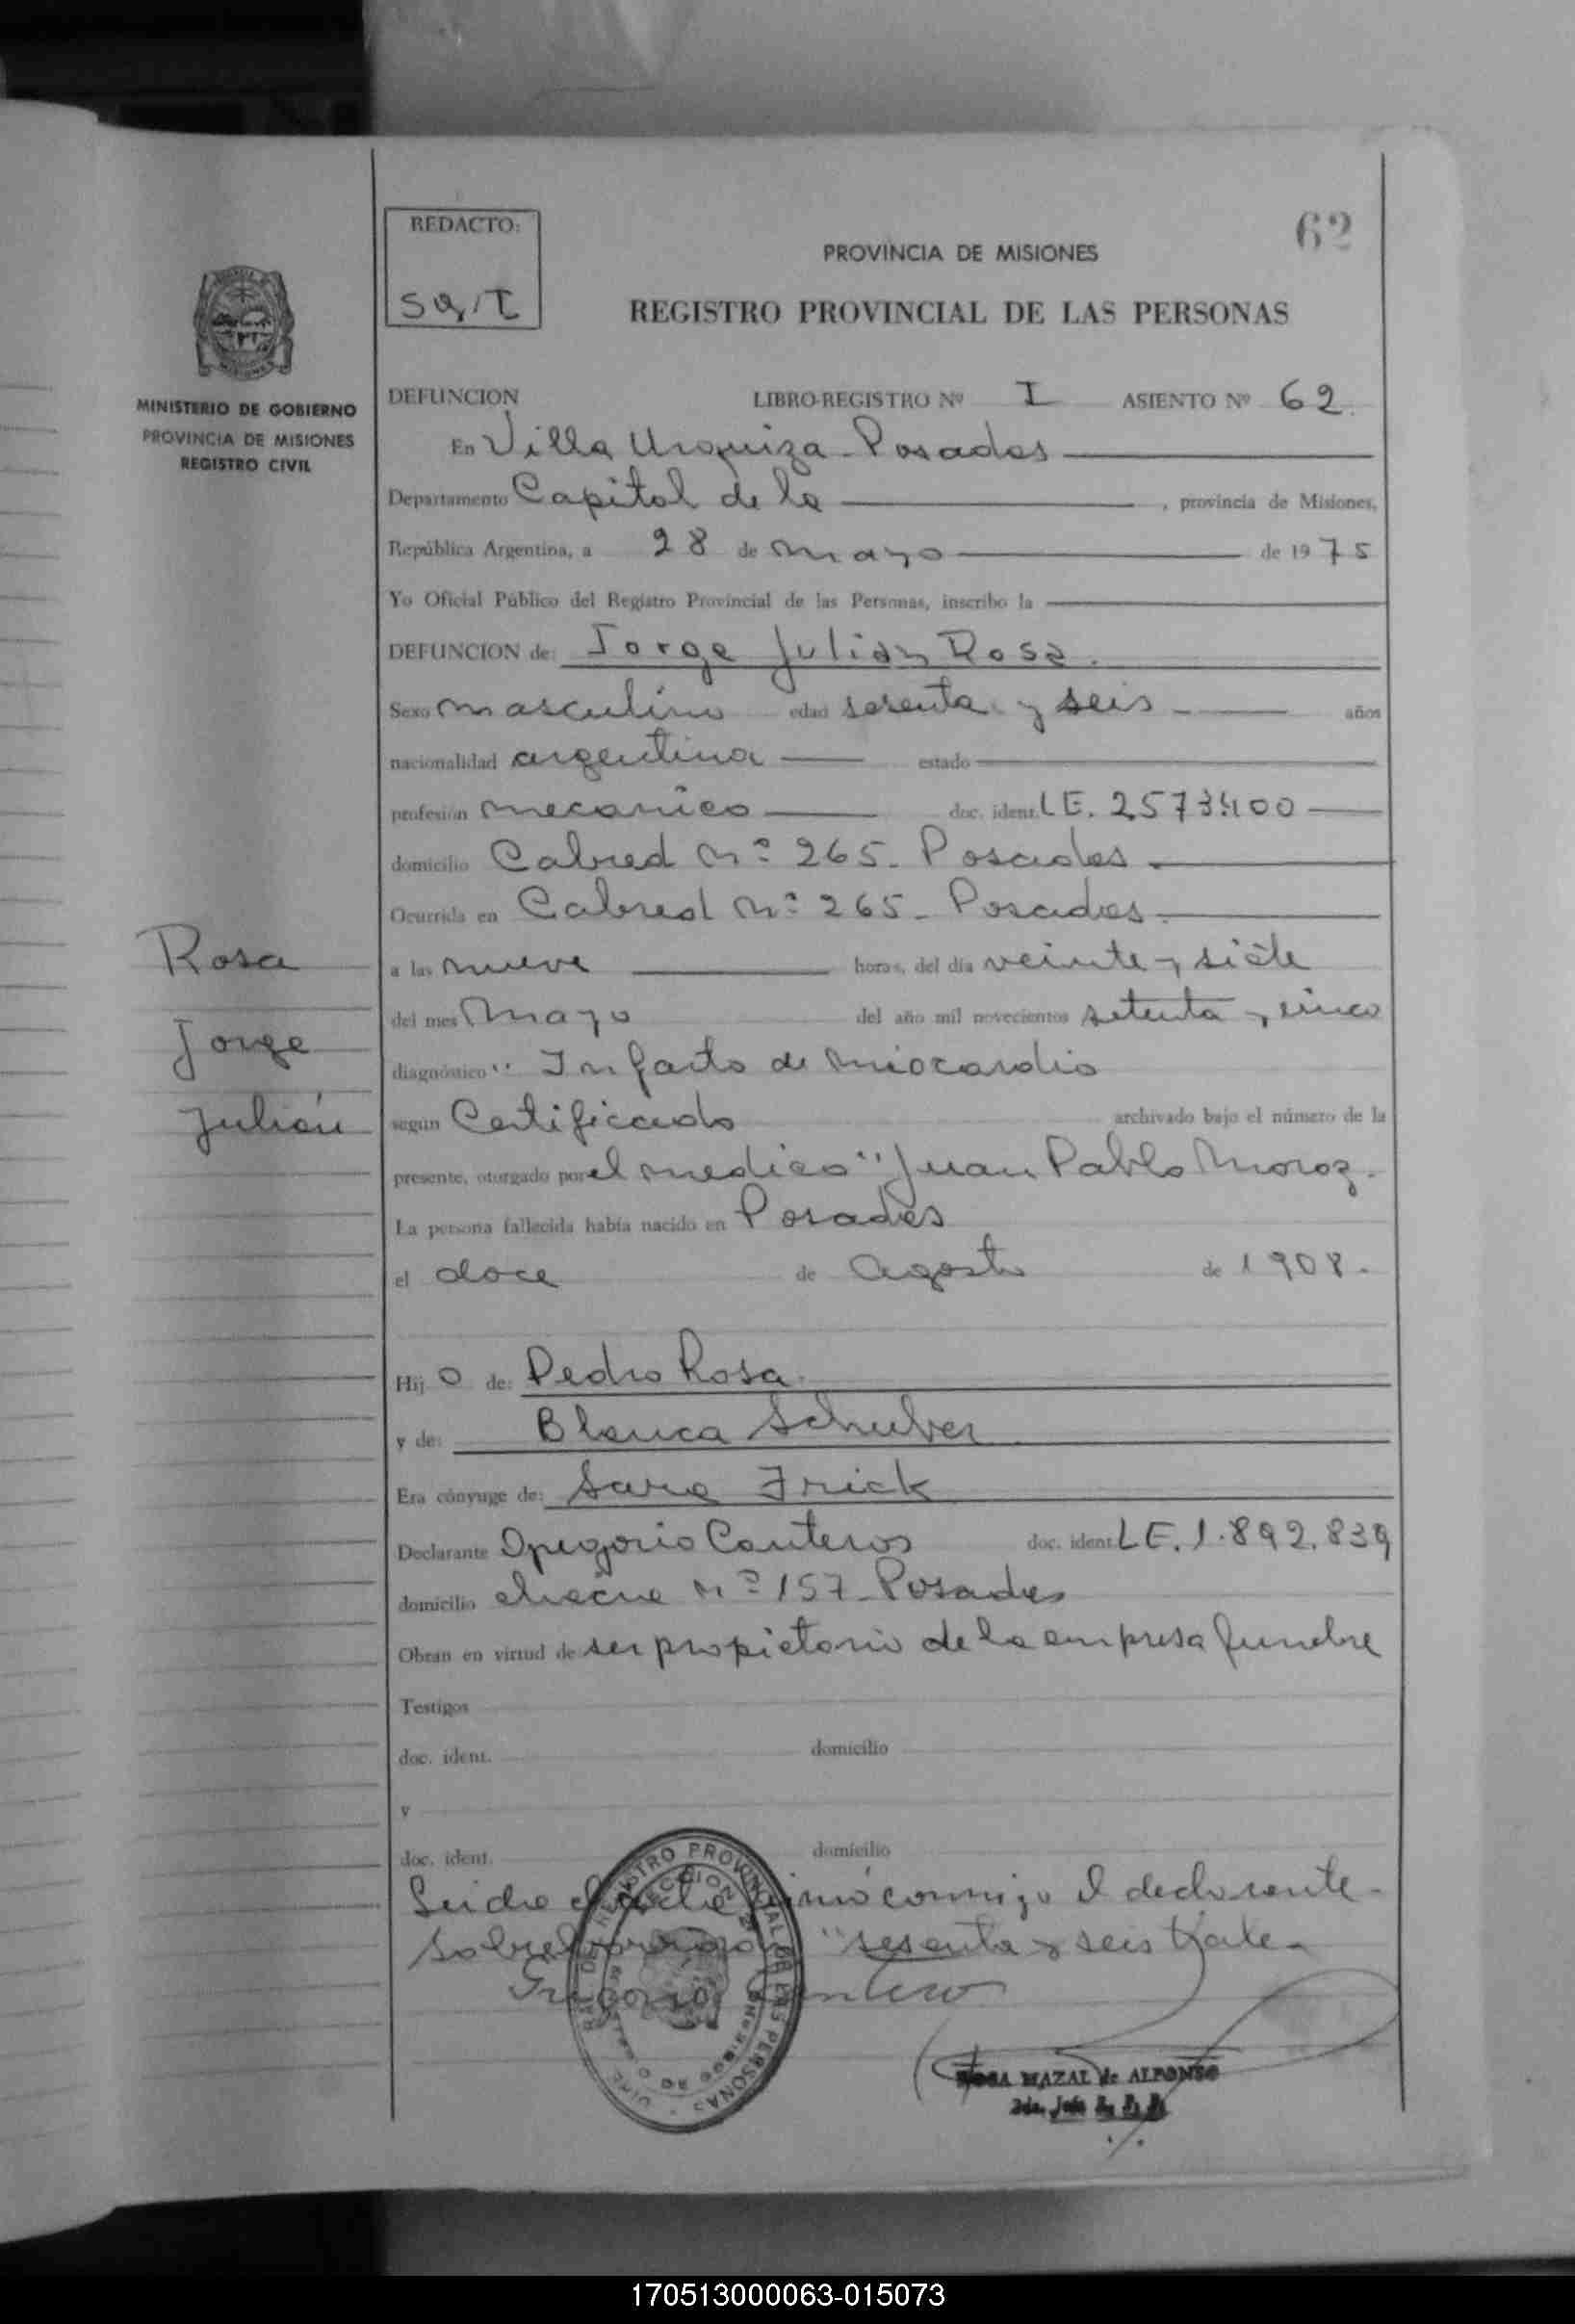 REDACTO:
62
PROVINCIA DE MISIONES
REGISTRO PROVINCIAL DE LAS PERSONAS
MINISTERIO DE GOBIERNO
PROVINCIA DE MISIONES
REGISTRO CIVIL
DEFUNCION LIBRO-REGISTRO Nº I ASIENTO Nº 62
En Villa Urquiza - Posadas
Departamento Capital de la , provincia de Misiones,
República Argentina, a 28 de mayo de 1975
Yo Oficial Público del Registro Provincial de las Personas, inscribo la
DEFUNCION de: Jorge Julián Rosa.
Sexo masculino edad sesenta y seis años
nacionalidad argentina estado
profesión mecanico doc. ident. LE.
domicilio Cabred Nº 265 - Posadas.
Ocurrida en Cabred Nº 265 - Posadas.
a las nueve horas, del día veinte y siete
del mes mayo del año mil novecientos setenta y cinco
diagnóstico "Infarto de miocardio
según Certificado archivado bajo el número de la
presente, otorgado por el medico "Juan Pablo Moroz.
La persona fallecida había nacido en Posadas
el doce de Agosto de 1908.
Rosa
Jorge
Julián
Hij o de: Pedro Rosa.
y de: Blanca Schuber
Era cónyuge de: Sara Frick
Declarante Gregorio Canteros doc. ident. LE. 1.892.839
domicilio Nº 157 - Posadas
Obran en virtud de ser propietario de la empresa funebre
Testigos
doc. ident. domicilio
y
doc. ident. domicilio
Leida el acta firmó conmigo el declarante -
"sesenta y seis" Vale -
REGISTRO PROVINCIAL DE LAS PERSONAS
ROSA MAZAL de ALFONSO